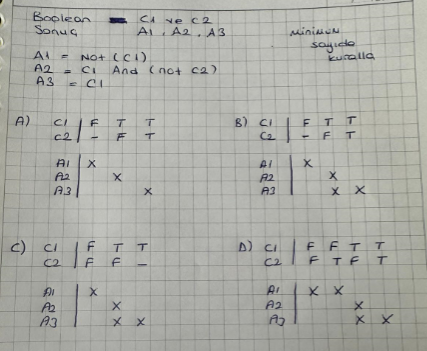 Boolean - C1 ve C2
Sonuç A1, A2, A3
minimum sayıda kuralla
A1 = Not (C1)
A2 = C1 And (not C2)
A3 = C1
A) C1 | F T T
C2 | - F T
A1 | X
A2 | X
A3 | X
B) C1 | F T T
C2 | - F T
A1 | X
A2 | X
A3 | X X
C) C1 | F T T
C2 | F F -
A1 | X
A2 | X
A3 | X X
D) C1 | F F T T
C2 | F T F T
A1 | X X
A2 | X
A3 | X X